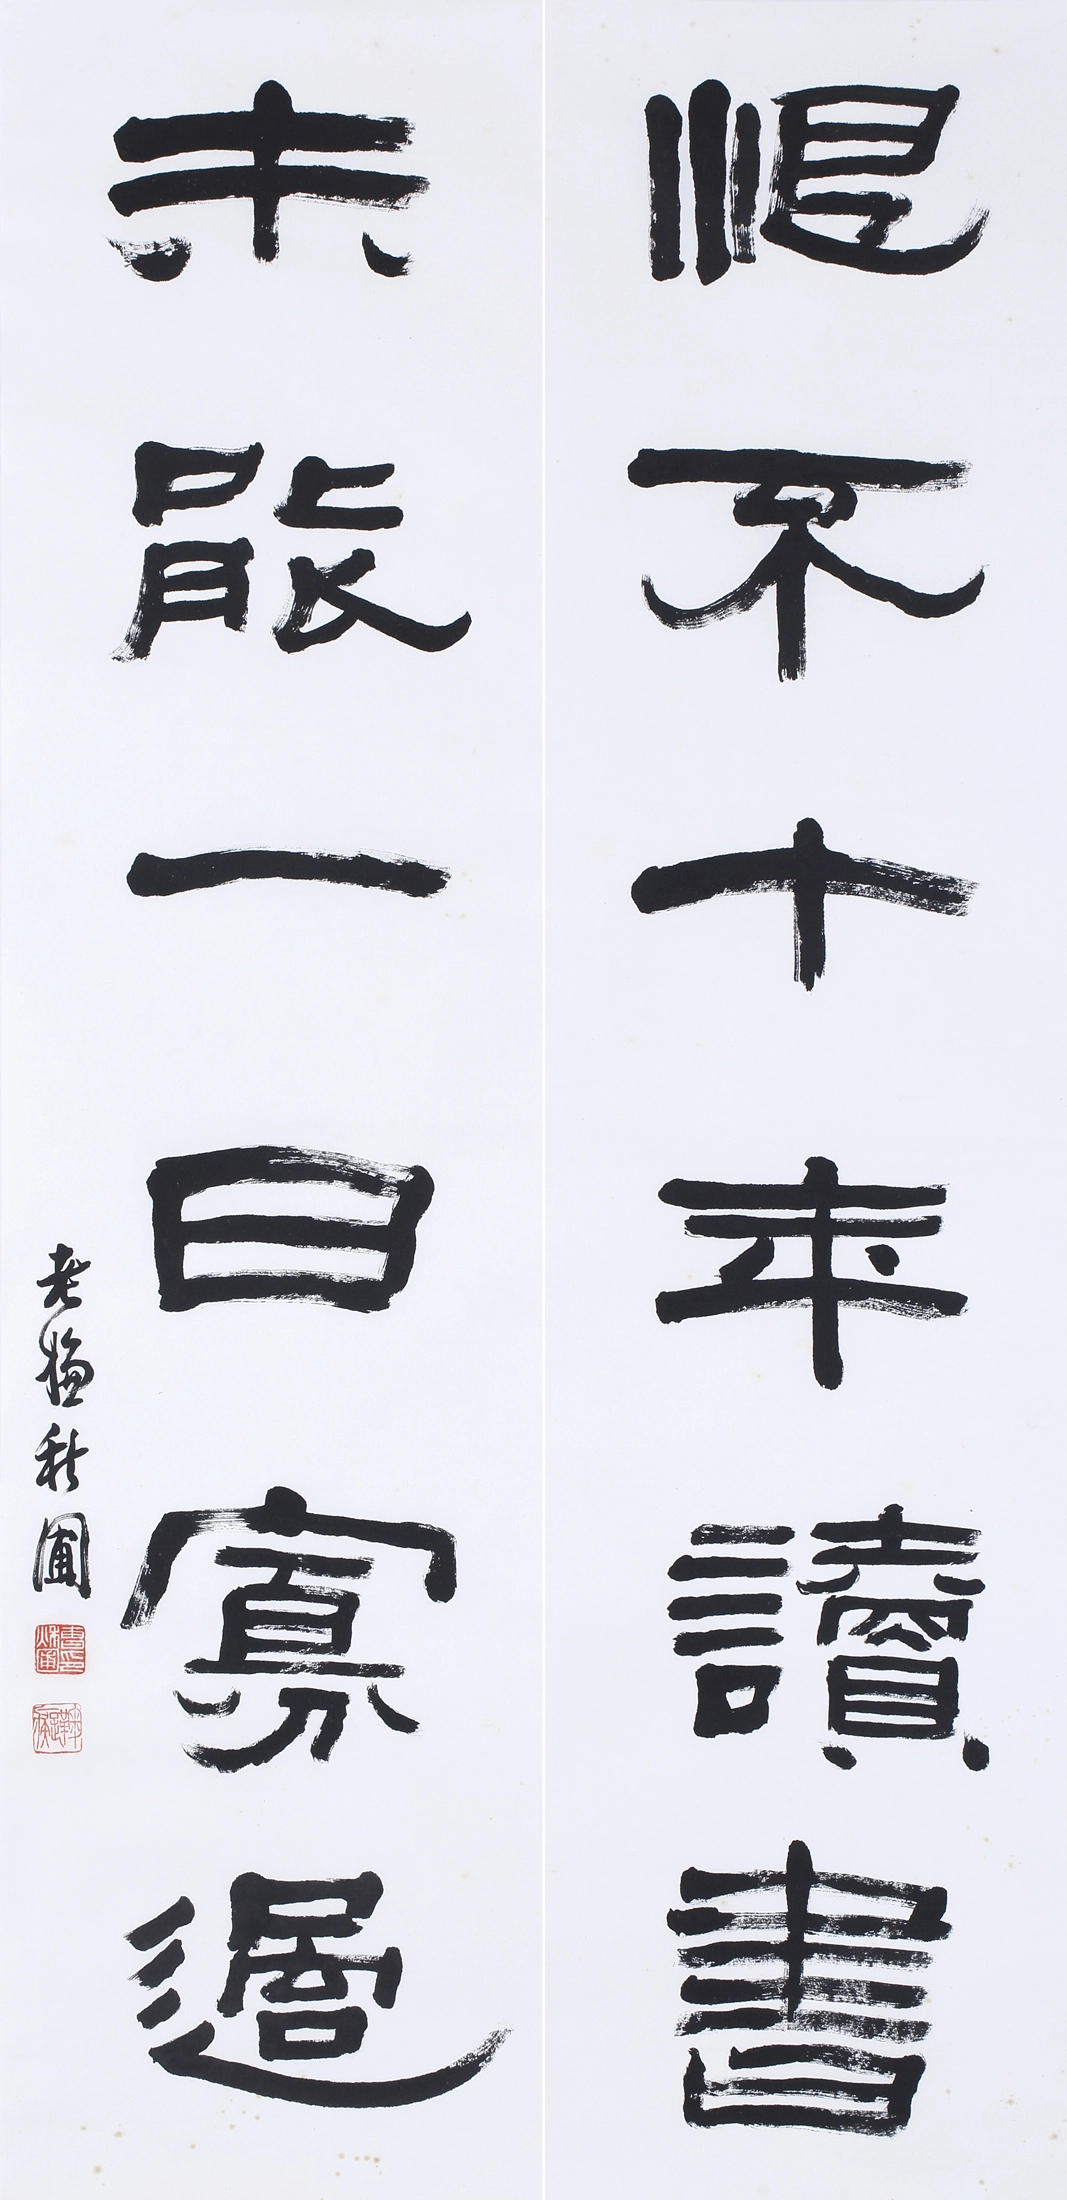 恨不十年讀書
未能一日寡過
老嫌秋圃